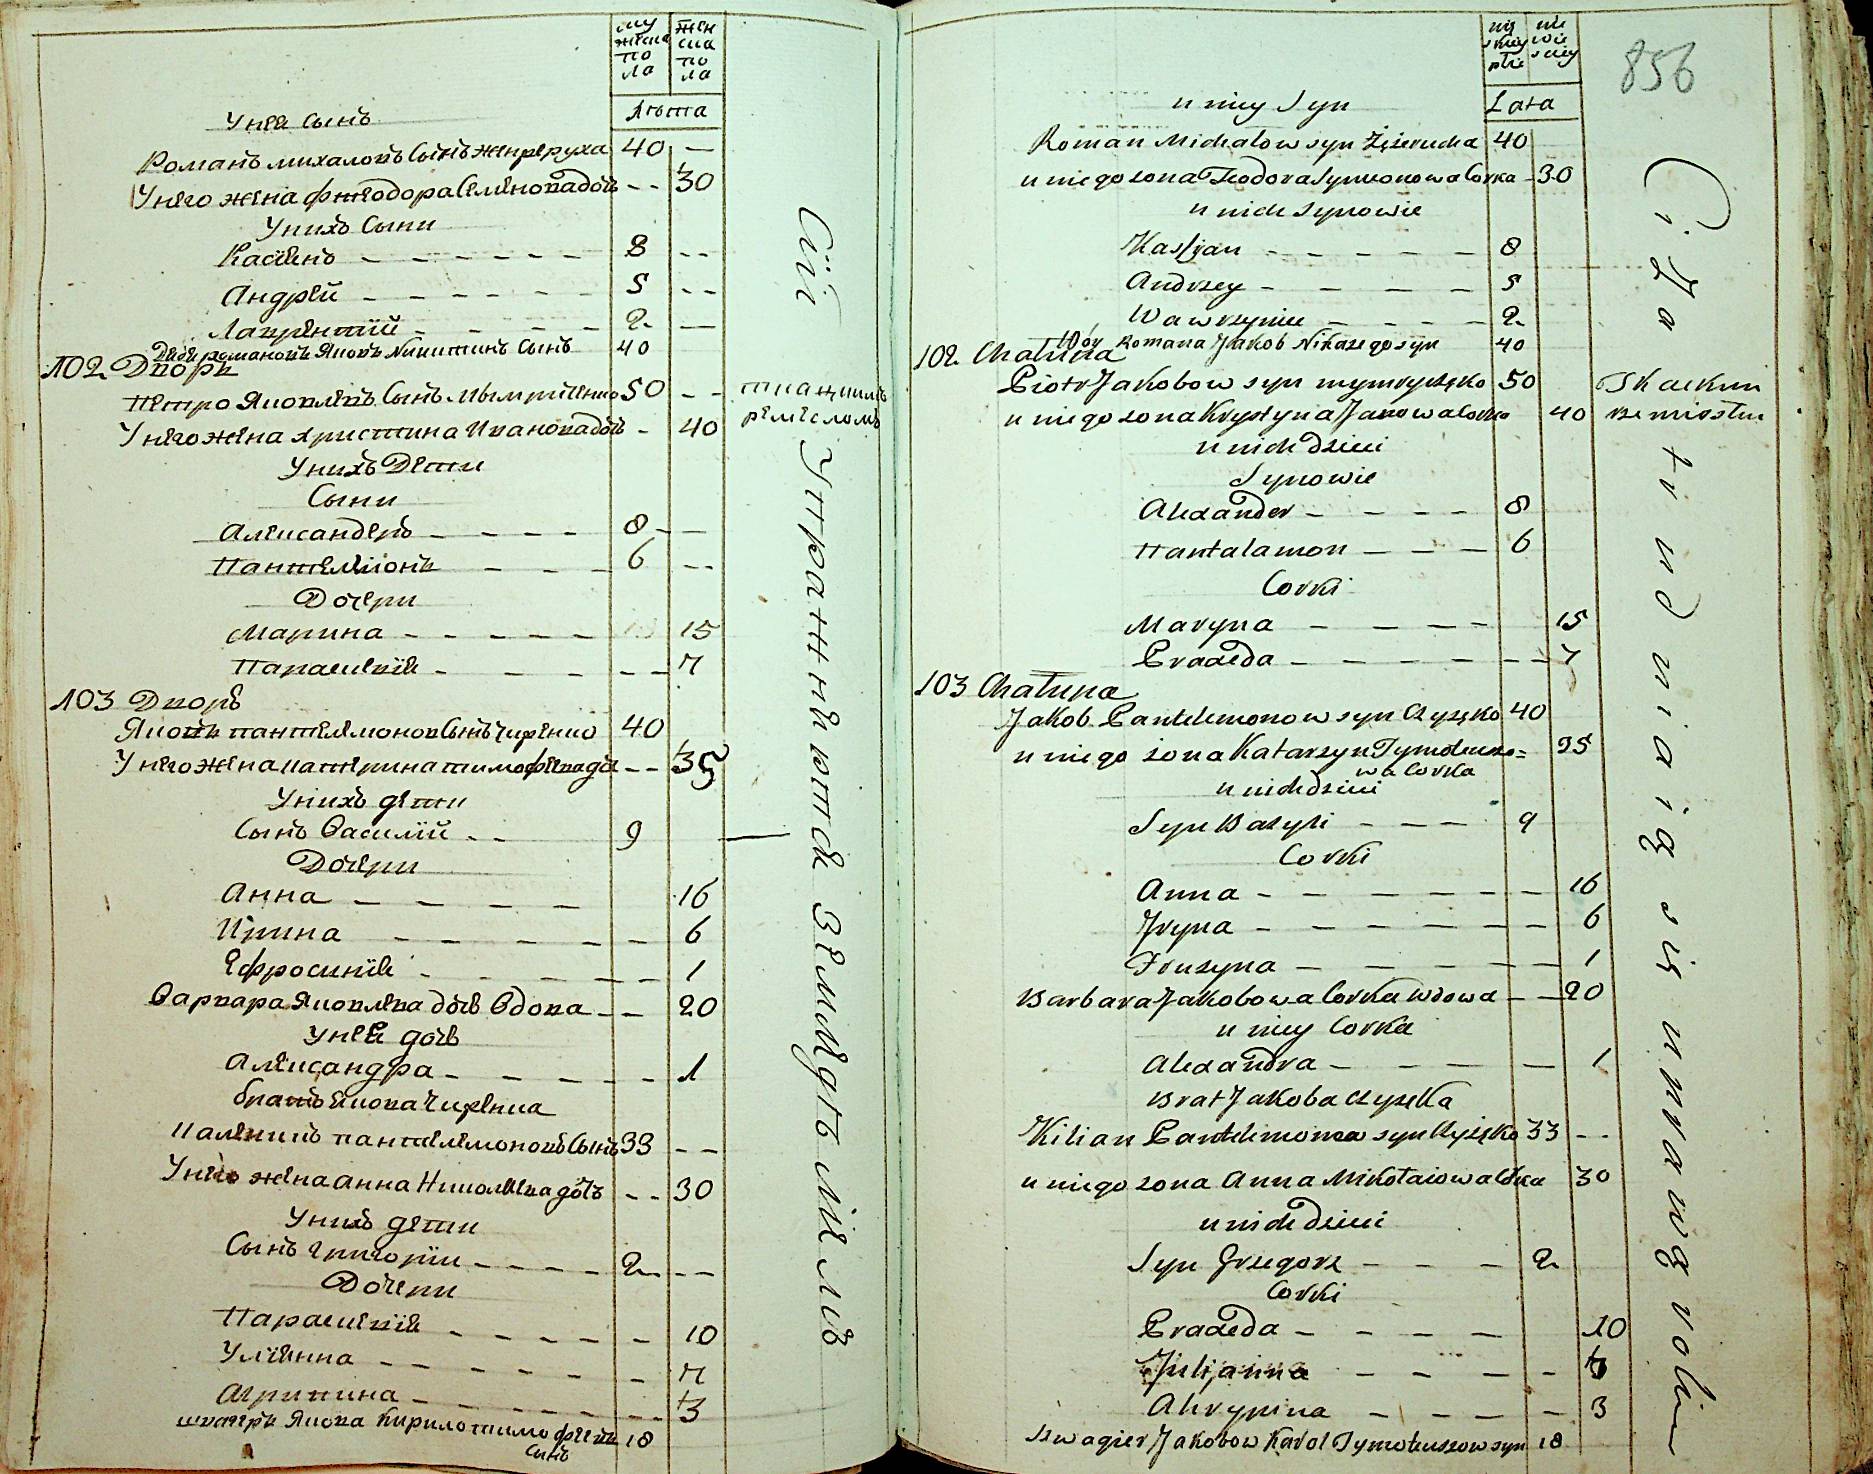 мужеска пола
женска пола
Лѣта
У нея сынъ
Романъ михаловъ сынъ 40 —
У него жена фтеодора Семѣнова доч -- 30
У нихъ Сыни
Касіянъ 8 --
Андрей 5 --
Лаврентій 2 —
Дядя романовъ Яковъ Никитинъ сынъ 40
102 Дворъ
Петро Яковлевъ Сынъ 50 -- ткацкимъ
У него жена христина Иванова доч - 40 ремесломъ
У нихъ Дети
Сыни
Александеръ 8 —
Пантелііонъ 6 --
Дочери
Марина 15
Параскевія 7
103 Дворъ
Яковъ пантелемонов Сынъ чиженко 40
У него жена катерина тимофеева д -- 35
У нихъ дети
Сынъ Василій -- 9
Дочери
Анна 16
Ирина 6
Ефросинія 1
Варвара Яковлева доч Вдова -- 20
У неѣ доч
Александра 1
братъ Якова
пантелемоновъ Сынъ 33 --
У него жена анна Николаева доч -- 30
У нихъ дети
Сынъ григорій 2 --
Дочери
Параскевія 10
Уліянна 7
Агрипина 3
швагеръ Якова Кирило тимофеевъ 18
сынъ
Сіи Упражняются Земледѣліемъ
856
Lata
u niey Syn
Roman Michałow syn 40
u niego zona Teodora Symonowa Corka - 30
u nich synowie
Kassyan 8
Andrzey 5
Wawrzyniec 2
Wóy Romana Jakob Nikazego syn 40
102 Chałupa
Piotr Jakobow syn 50 Tkackim
u niego zona Krystyna Janowa Corka 40 rzemiosłem
u nich dzieci
Synowie
Alexander 8
Pantalamon 6
Corki
Maryna 15
Praxeda 7
103 Chałupa
Jakob Pantelimonow syn Czyzęko 40
u niego żona Katarzyn Tymoteuszo= 35
wa Corka
u nich dzieci
Syn Bazyli 9
Corki
Anna 16
Iryna 6
Fruzyna 1
Barbara Jakobowa Corka Wdowa 20
u niey Corka
Alexandra 1
Brat Jakoba Czyzeka
Kilian Pantelimonow syn Czyzęko 33 --
u niego zona Anna Mikołaiowa Córka 30
u nich dzieci
Syn Grzegorz 2
Corki
Praxeda 10
Julijanna 7
Ahrypina 3
Szwagier Jakobow Karol Tymoteuszow syn 18
Ci zatrudniaią się uprawą roli